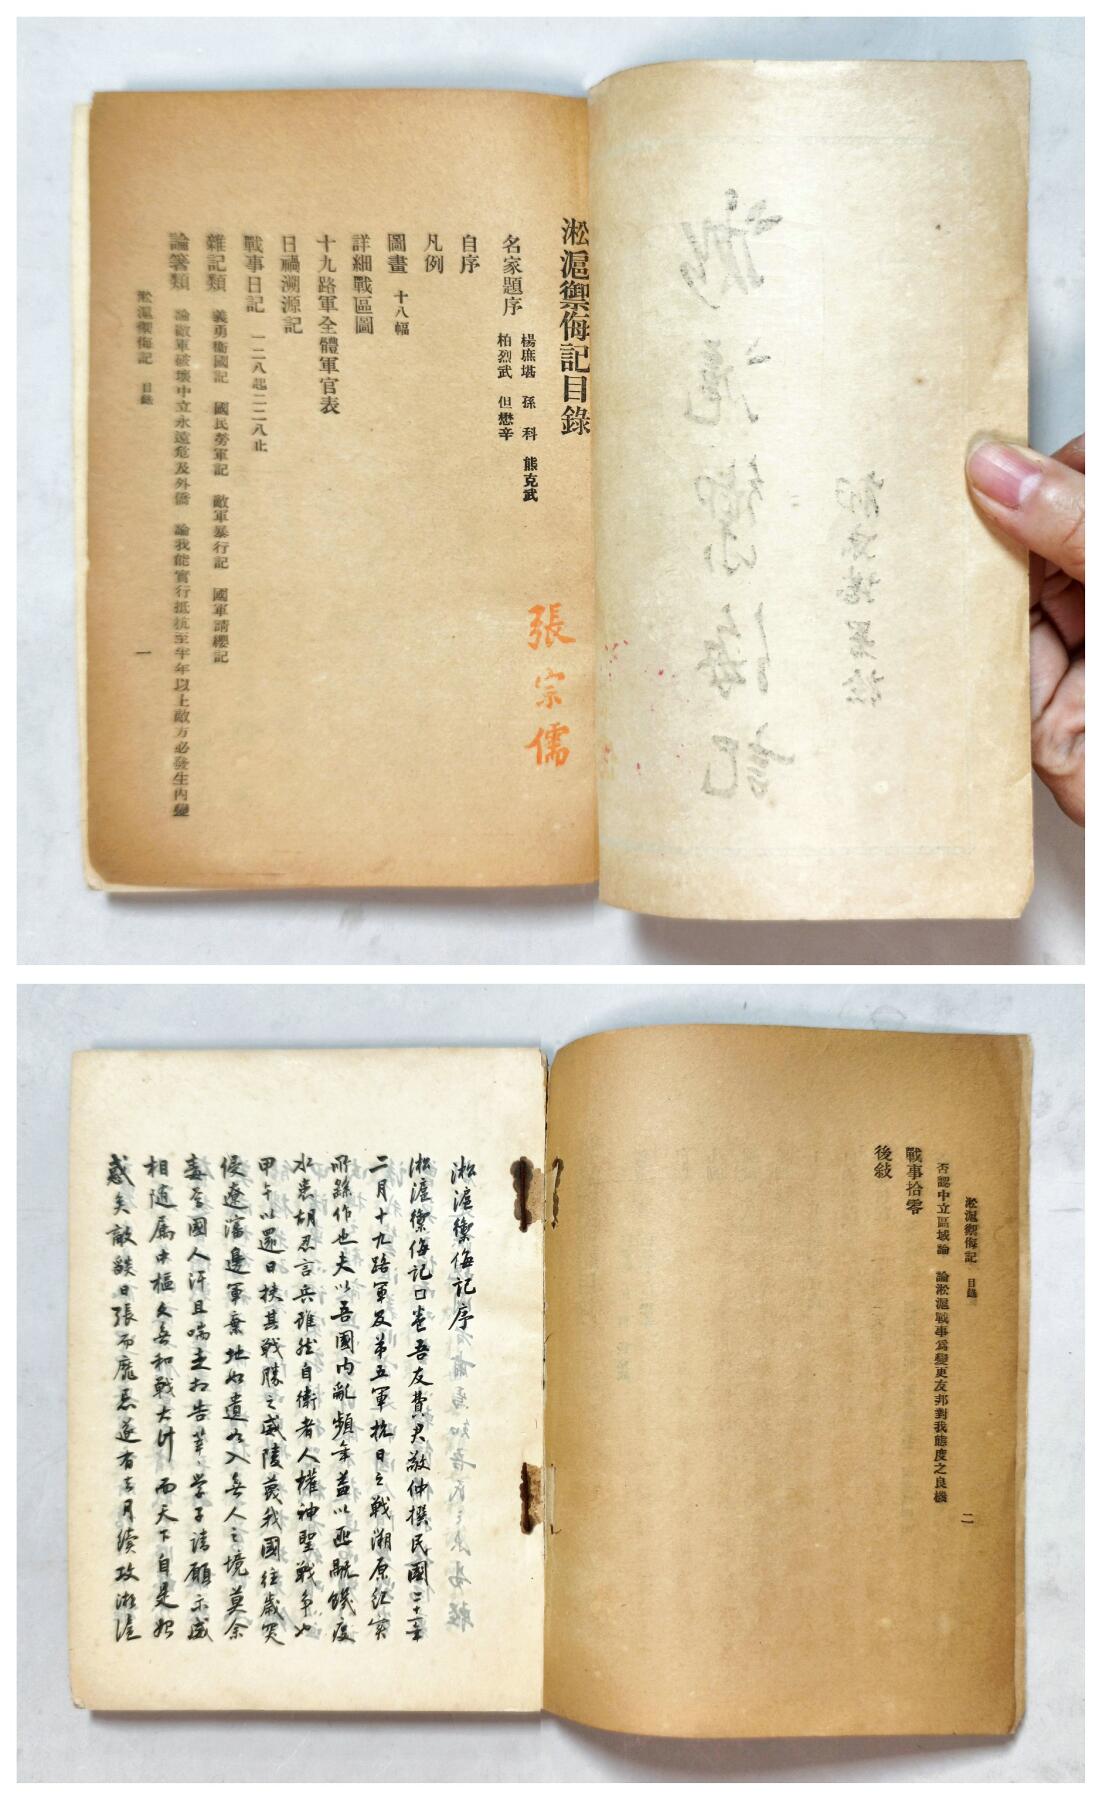 淞滬禦侮記目錄
名家題序
楊庶堪 孫科 熊克武
柏烈武 但懋辛
自序
凡例
圖畫 十八幅
詳細戰區圖
十九路軍全體軍官表
日禍溯源記
戰事日記 一二八起二二八止
雜記類 義勇衞國記 國民勞軍記 敵軍暴行記 國軍請纓記
論箸類 論敵軍破壞中立永遠危及外僑 論我能實行抵抗至半年以上敵方必發生內變
淞滬禦侮記 目錄
一
張宗儒
淞滬禦侮記
淞滬禦侮記 目錄
二
否認中立區域論 論淞滬戰事爲變更友邦對我態度之良機
戰事拾零
後敍
淞滬禦侮記序
淞滬禦侮記口卷吾友費君敬仲撰民國二十一年
二月十九路軍及第五軍抗日之戰溯原紀實
所繇作也夫以吾國內亂頻年益以匪氛饑疫
水患胡忍言兵雖然自衛者人權神聖戰爭也
甲午以還日挾其戰勝之威陵蔑我國往歲突
侵遼瀋邊軍棄地如遺如入無人之境莫余
毒全國人汗且喘走相告莘莘學子請願示威
相隨屬中樞久無和戰大計而天下自是始
惑矣敵燄日張而靡忌遂有去月續攻淞滬